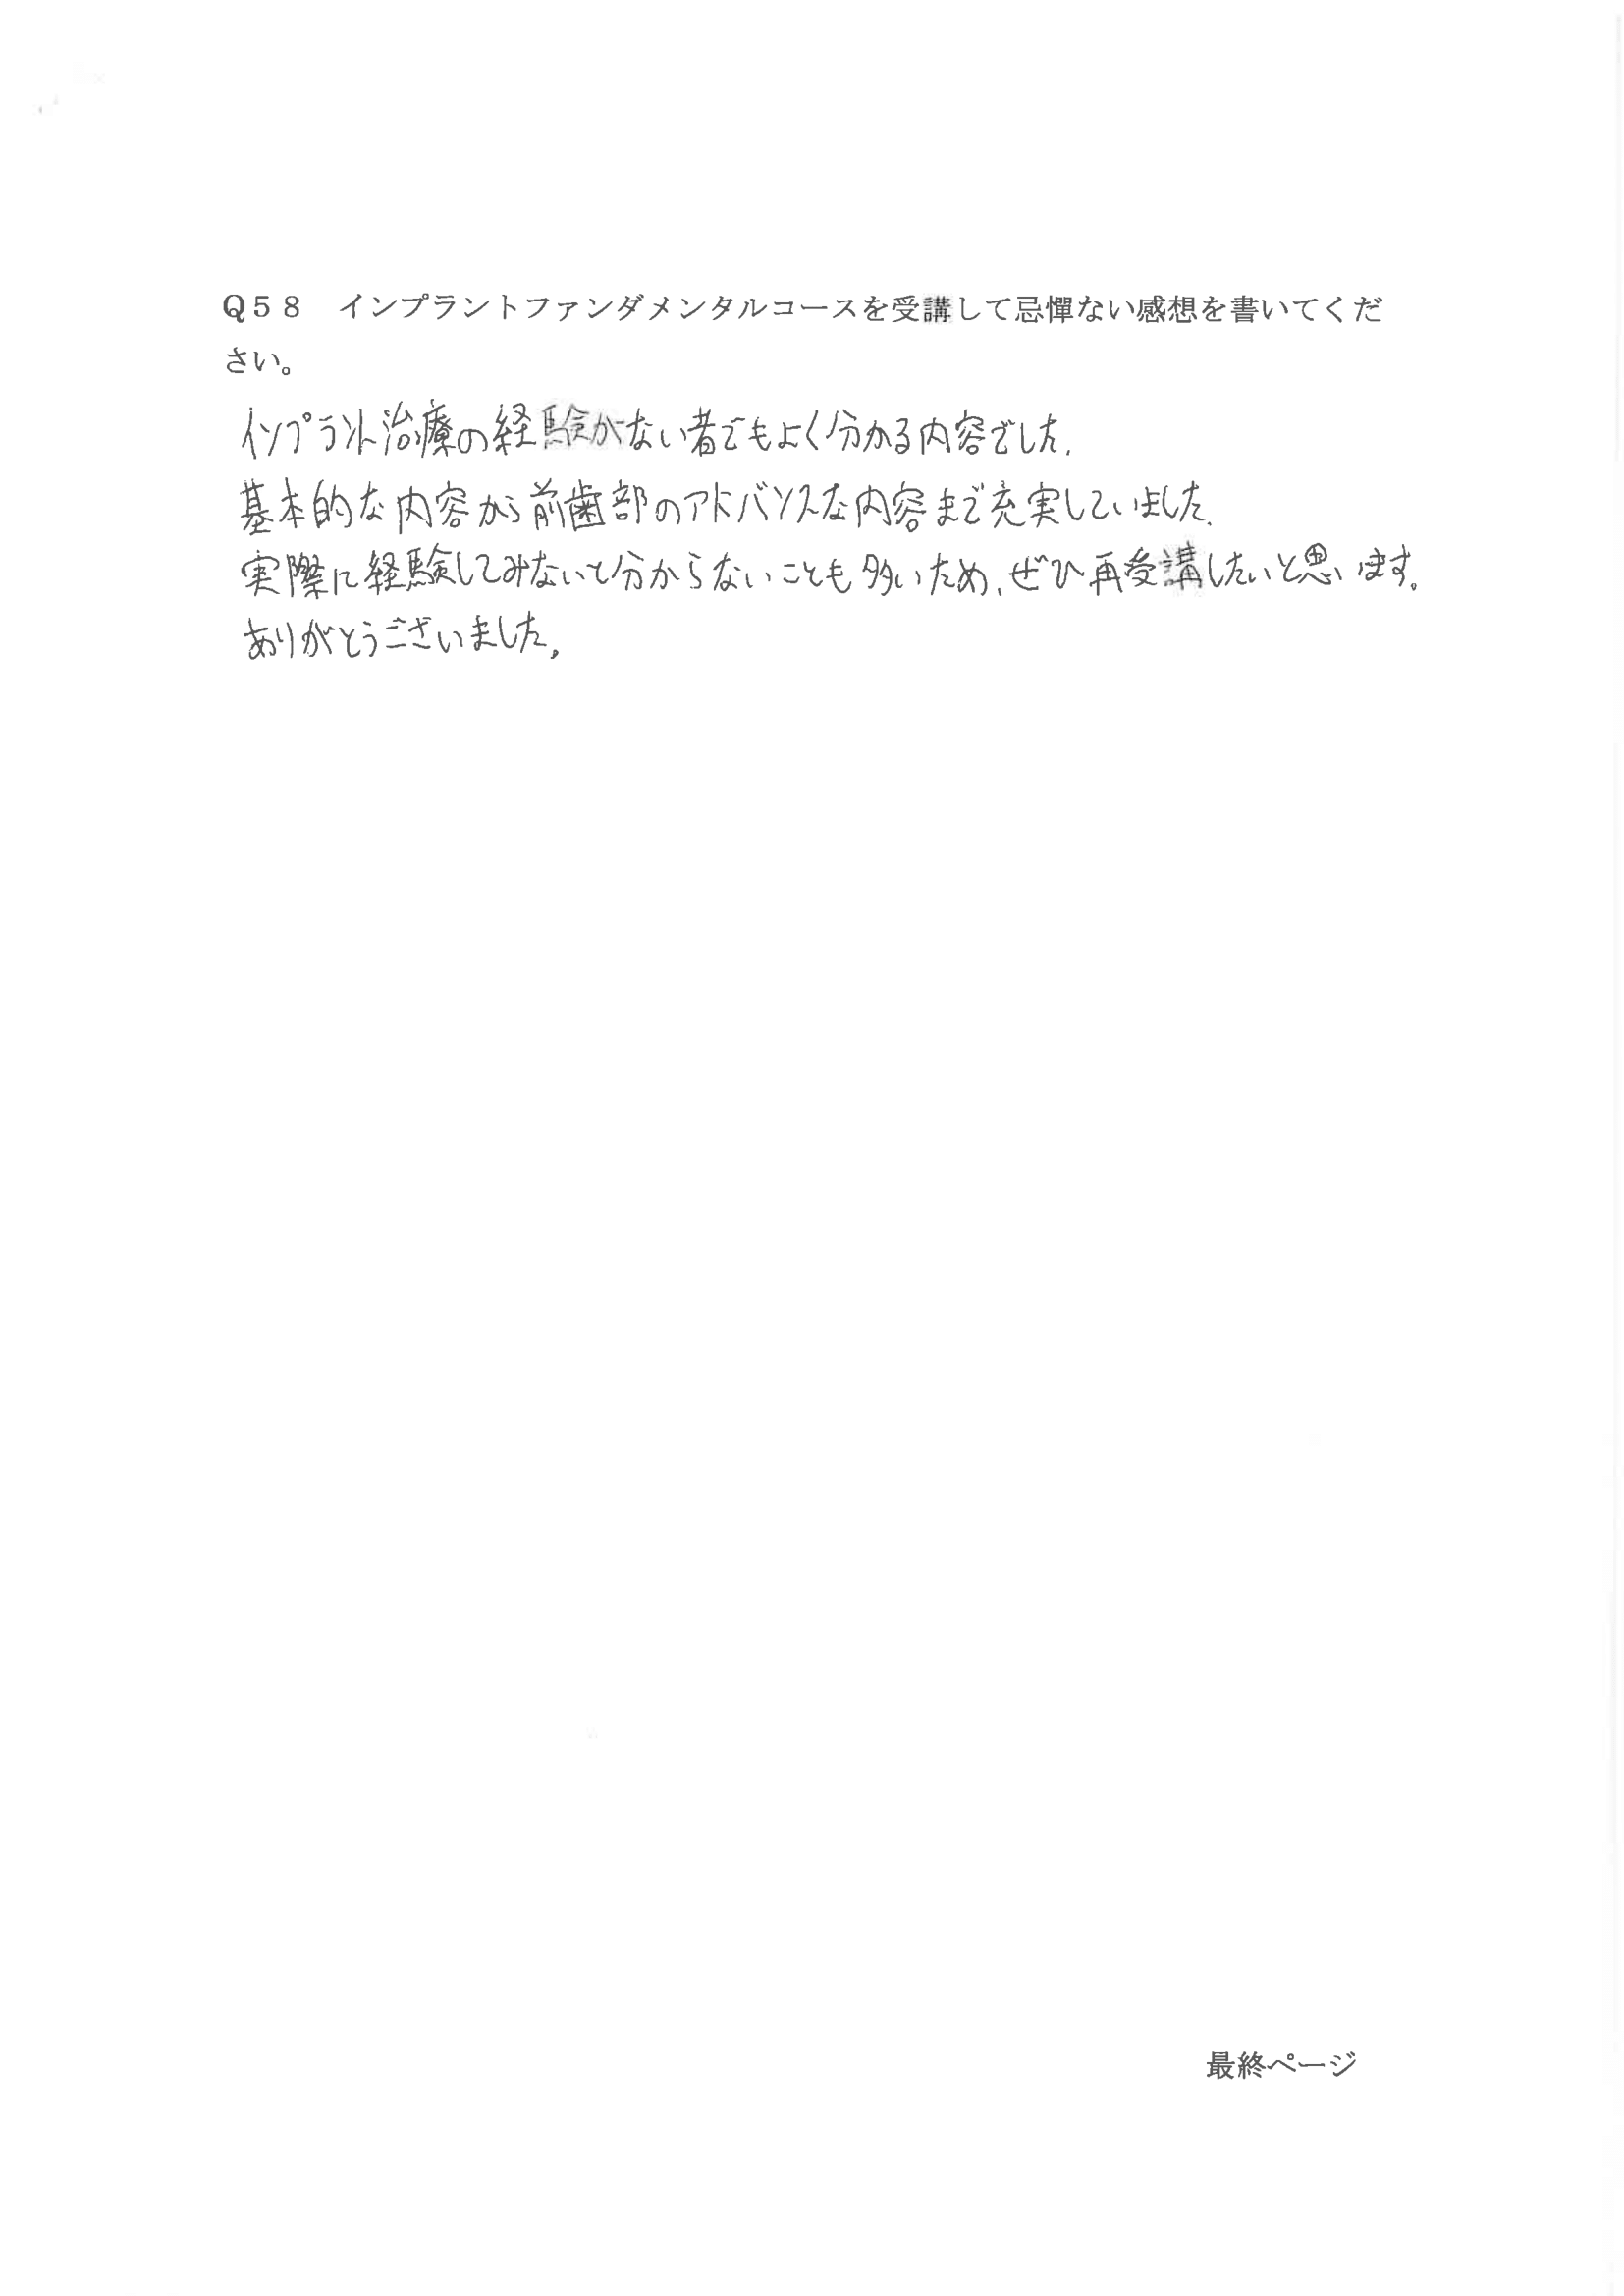 Q58 インプラントファンダメンタルコースを受講して忌憚ない感想を書いてくだ
さい。
インプラント治療の経験がない者でもよく分かる内容でした.
基本的な内容から前歯部のアドバンスな内容まで充実していました.
実際に経験してみないと分からないことも多いため、ぜひ再受講したいと思います。
ありがとうございました。
最終ページ